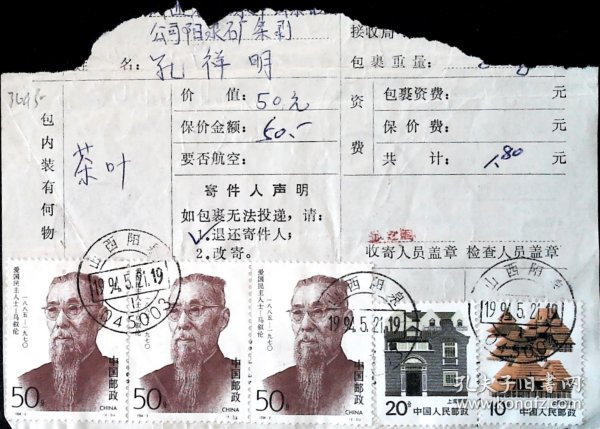 公司阳泉矿务局
接收局
名：孔祥明
包裹重量：
3695
包内装有何物
茶叶
价值：50元
保价金额：50.-
要否航空：
资费
包裹资费：元
保价费：元
共计：1.80元
寄件人声明
如包裹无法投递，请：
√1.退还寄件人；
2.改寄。
收寄人员盖章 检查人员盖章
山西阳泉
1994.5.21.19
045003
山西阳泉
1994.5.21.19
山西阳泉
1994.5.21.19
爱国民主人士—马叙伦
一八八五—一九七〇
50分
中国邮政
CHINA
50分
中国邮政
CHINA
爱国民主人士—马叙伦
一八八五—一九七〇
50分
中国邮政
CHINA
20分
上海民居
中国人民邮政
10分
中国人民邮政
孔夫子旧书网
www.kongfz.com